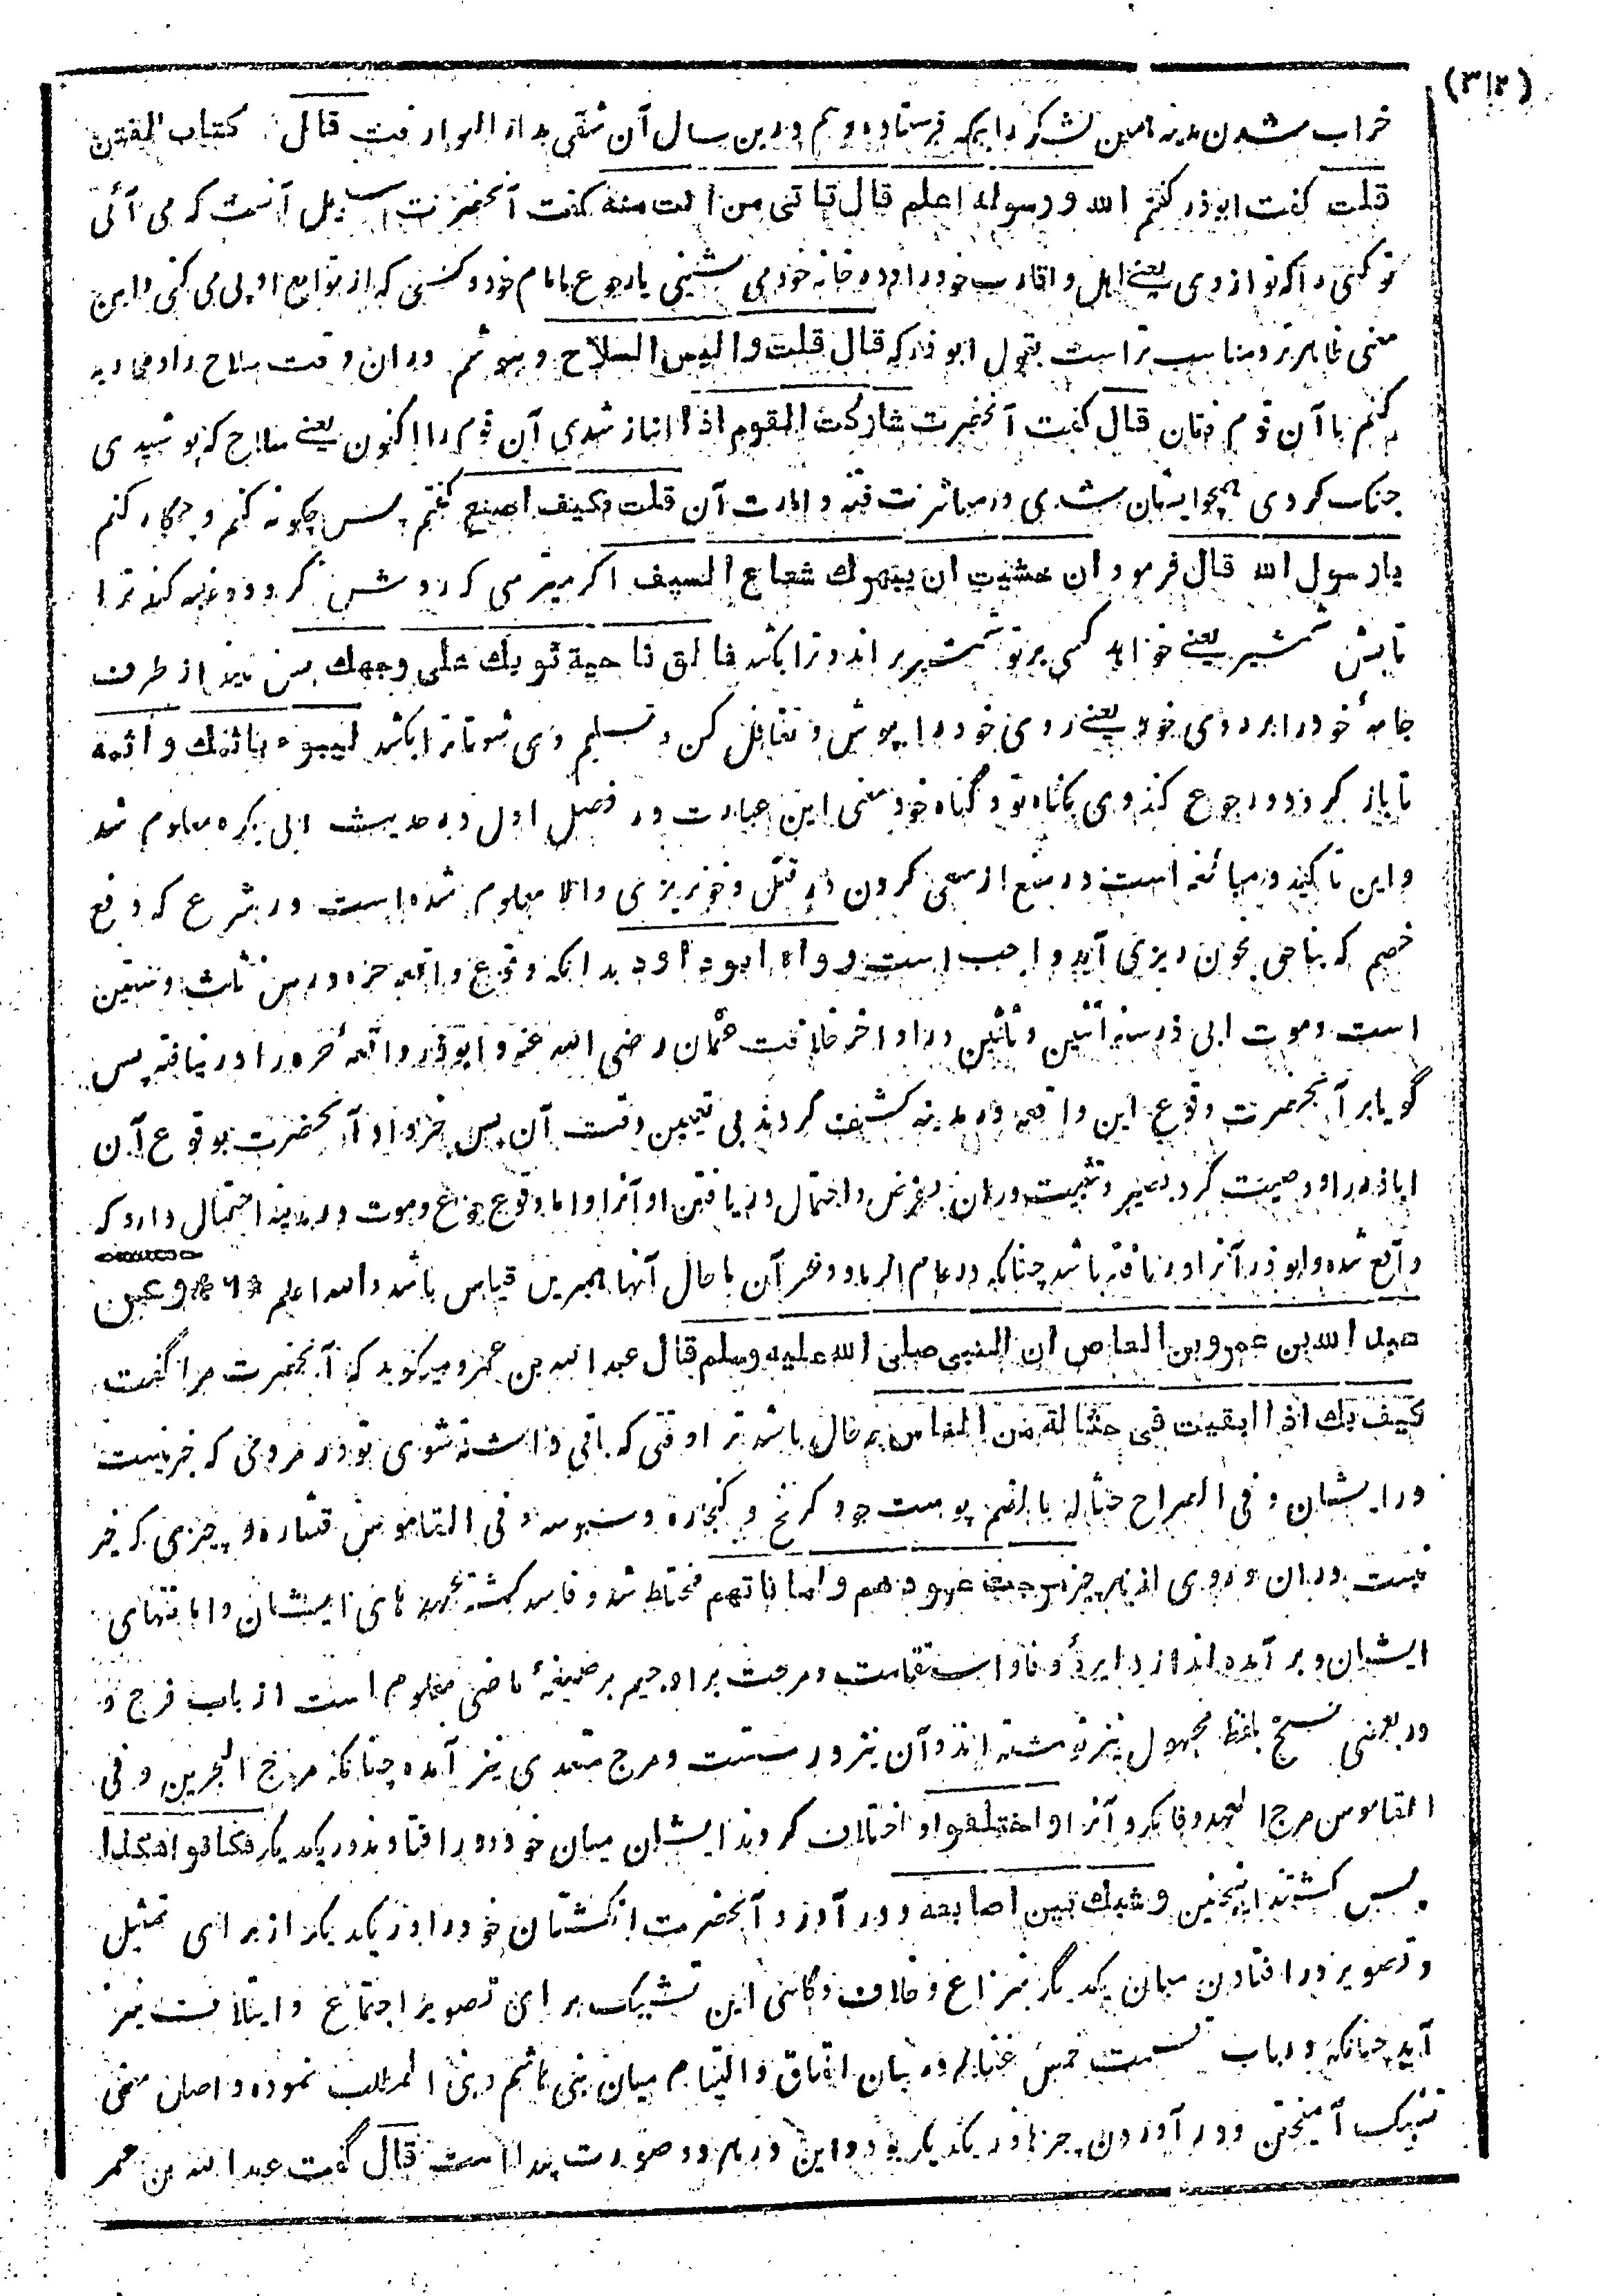 (۳۱۲)
خراب شدن مدینه همین لشکر را بمکه فرستاده و هم درین سال آن شقی بدار البوار رفت قال کتاب الفتن
قلت گفت ابوذر گفتم الله ورسوله اعلم قال تاتی من انت منه گفت آنحضرت آنست که می آئی
تو کسی را که تو از وی یعنی اهل و اقارب خود را و در خانه خود می نشینی یا رجوع بامام خود و کسی که از توابع اویی می کنی و این
معنی ظاهرتر و مناسب تر است بقول ابوذر که قال قلت والبس السلاح و بپوشم در آن وقت سلاح را و محاربه
کنم با آن قوم فتان قال گفت آنحضرت شارکت القوم اذا انباز شدی آن قوم را اکنون یعنی سلاح که پوشیدی
جنگ کردی همچو ایشان شدی در مباشرت فتنه و اثارت آن قلت فکیف اصنع گفتم پس چگونه کنم و چکار کنم
یا رسول الله قال فرمود ان خشیت ان یبهرك شعاع السیف اگر میترسی که روشن گردد و غلبه کند ترا
تابش شمشیر یعنی خواهد کسی بر تو شمشیر براند و ترا بکشد فالق ناحیة ثوبك علی وجهك پس بینداز طرف
جامهٔ خود را بر روی خود یعنی روی خود را بپوش و تغافل کن و تسلیم وی شو تا ترا بکشد لیبوء باثمك واثمه
تا باز گردد و رجوع کند وی بگناه تو و گناه خود معنی این عبارت در فصل اول در حدیث ابی بکره معلوم شد
و این تاکید و مبالغه است در منع از سعی کردن در قتل و خونریزی والا معلوم شده است در شرع که دفع
خصم که بناحق بخون ریزی آید واجب است رواه ابوداود بدانکه وقوع واقعه حره در سن ثلث و ستین
است و موت ابی ذر سنه اثنین و ثلثین در اواخر خلافت عثمان رضی الله عنه و ابوذر واقعهٔ حره را در نیافته پس
گویا بر آنحضرت وقوع این واقعه در مدینه کشف کردند بی تعیین وقت آن پس خبر داد آنحضرت بوقوع آن
اباذر را و وصیت کرد بصبر و تثبت در آن بفرض و احتمال در یافتن او آنرا و اما وقوع جوع و موت در مدینه احتمال دارد که
واقع شده و ابوذر آنرا دریافته باشد چنانکه در عام الرماد و غیر آن با حال آنها همبرین قیاس باشد والله اعلم وعن
عبد الله بن عمرو بن العاص ان النبی صلی الله علیه وسلم قال عبد الله بن عمرو میگوید که آنحضرت مرا گفت
کیف بك اذا ابقیت فی حثالة من الناس چه حال باشد ترا وقتی که باقی داشته شوی تو در مردمی که خیر نیست
در ایشان و فی الصراح حثاله بالضم پوست جو و کرنج و کنجاره و سبوسه و فی القاموس قشاره و چیزی که خیر
نیست در آن و ردی از هر چیز مرجت عهودهم واماناتهم مختلط شد و فاسد گشته عهد های ایشان و امانتهای
ایشان و بر آمده اند از دایرهٔ وفا و استقامت و مرجت برا و جیم بر صیغهٔ ماضی معلوم است از باب فرح و
در بعضی نسخ بلفظ مجهول نیز نوشته اند و آن نیز درست است و مرج متعدی نیز آمده چنانکه مرج البحرین و فی
القاموس مرج العهد وفا نکرد آنرا واختلفوا و اختلاف کردند ایشان میان خود و در افتادند در یکدیگر فکانوا هکذا
پس گشتند اینچنین وشبك بین اصابعه و در آورد آنحضرت انگشتان خود را در یکدیگر از برای تمثیل
و تصویر در افتادن میان یکدیگر بنزاع و خلاف و گاهی این تشبیک برای تصویر اجتماع و ایتلاف نیز
آید چنانکه در باب قسمت خمس غنایم در بیان اتفاق و التیام میان بنی هاشم و بنی المطلب نموده و اصل معنی
تشبیک آمیختن و در آوردن چیزها در یکدیگر بود و این در هر دو صورت پیدا است قال گفت عبد الله بن عمر